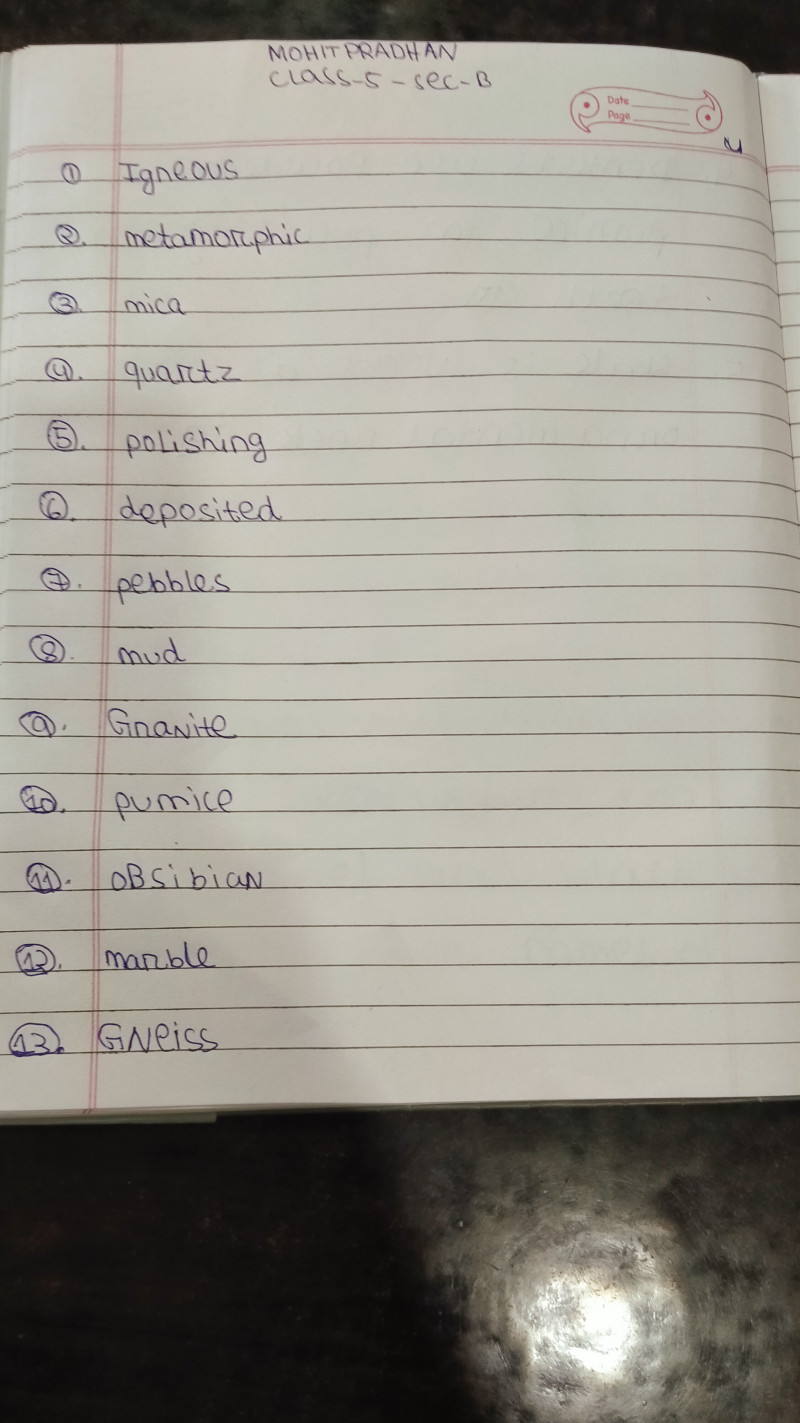 MOHIT PRADHAN
Class-5-sec-B
Date
Page
① Igneous
②. metamorphic
③. mica
④. quartz
⑤. polishing
⑥. deposited
⑦. pebbles
⑧. mud
⑨. Granite
⑩. pumice
⑪. oBsibiaN
⑫. marble
⑬. GNeiss